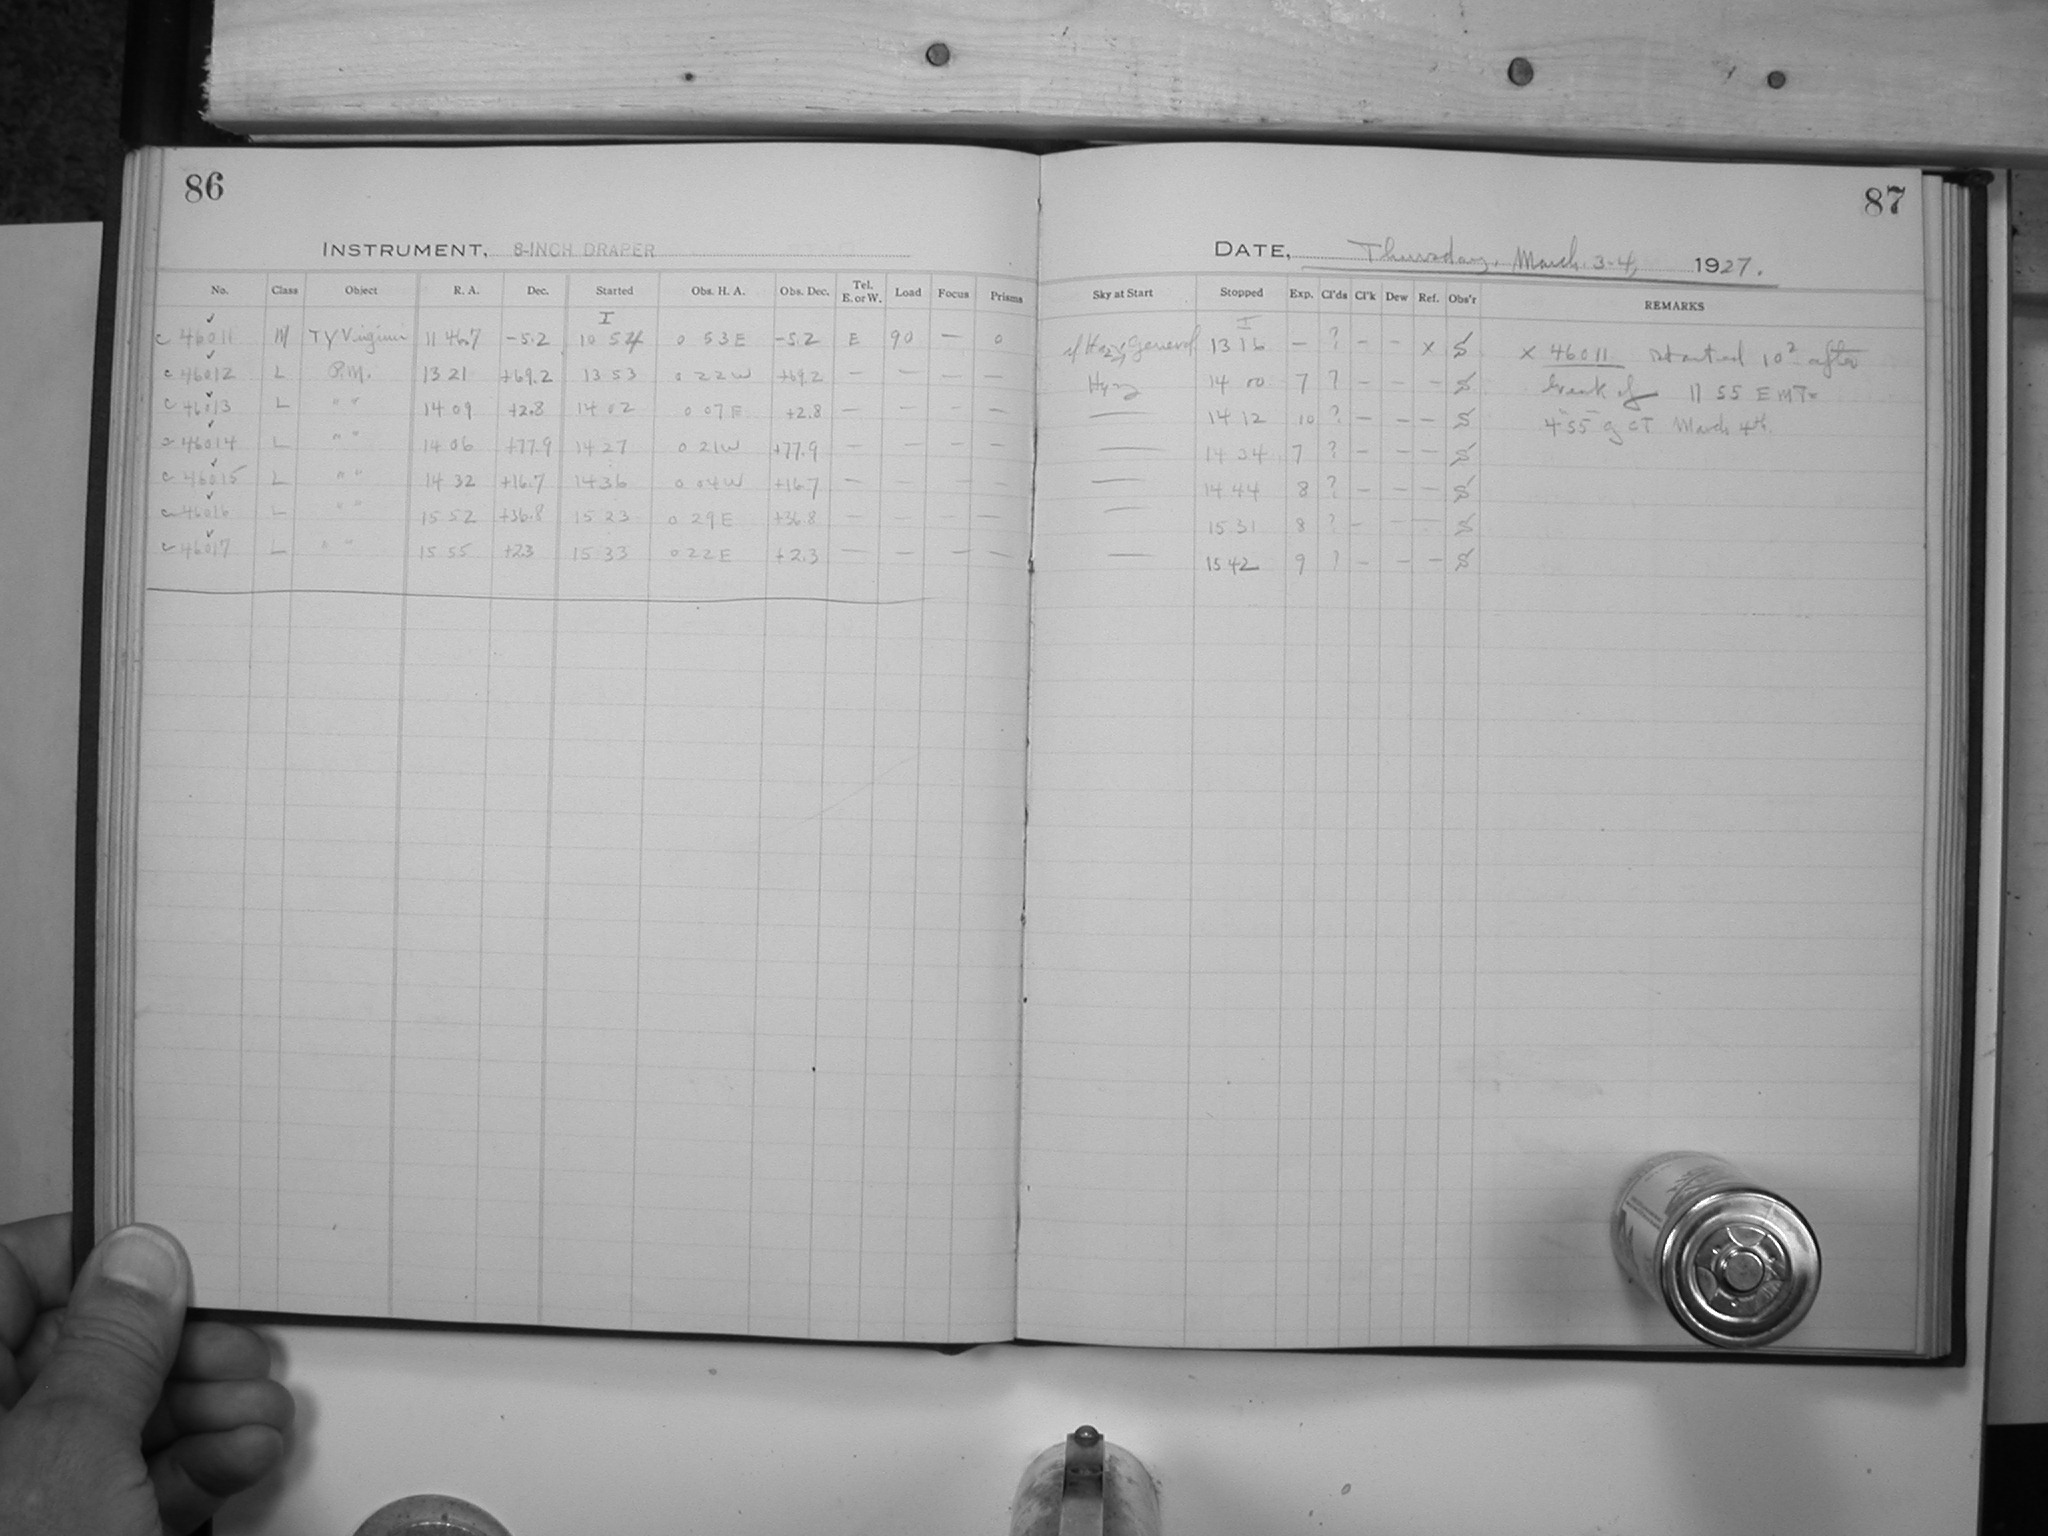 86
INSTRUMENT, 8-INCH DRAPER
No. Class Object R. A. Dec. Started Obs. H. A. Obs. Dec. Tel. E. or W. Load Focus Prisms
I
c 46011 M TY Virginis 11 46.7 -5.2 10 54 0 53 E -5.2 E 90 — 0
c 46012 L P.M. 13 21 +69.2 13 53 0 22 W +69.2 — — — —
c 46013 L " " 14 09 +2.8 14 02 0 07 E +2.8 — — — —
c 46014 L " " 14 06 +77.9 14 27 0 21 W +77.9 — — — —
c 46015 L " " 14 32 +16.7 14 36 0 04 W +16.7 — — — —
c 46016 L " " 15 52 +36.8 15 23 0 29 E +36.8 — — — —
c 46017 L " " 15 55 +2.3 15 33 0 22 E +2.3 — — — —
87
DATE, Thursday, March 3-4, 1927.
Sky at Start Stopped Exp. Cl'ds Cl'k Dew Ref. Obs'r REMARKS
I
Hazy General 13 16 — ? — — x S x 46011 started 10² after
Hazy 14 00 7 ? — — — S break of 11 55 EMT =
— 14 12 10 ? — — — S 4 55 GCT March 4th.
— 14 34 7 ? — — — S
— 14 44 8 ? — — — S
— 15 31 8 ? — — — S
— 15 42 9 ? — — — S